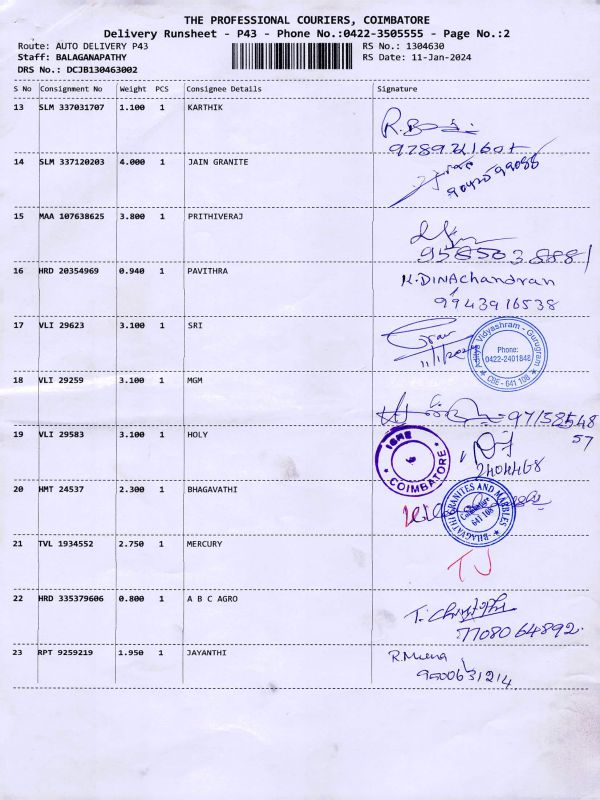 THE PROFESSIONAL COURIERS, COIMBATORE
Delivery Runsheet - P43 - Phone No.:0422-3505555 - Page No.:2
Route: AUTO DELIVERY P43 RS No.: 1304630
Staff: BALAGANAPATHY RS Date: 11-Jan-2024
DRS No.: DCJB130463002
S No Consignment No Weight PCS Consignee Details Signature
13 SLM 337031707 1.100 1 KARTHIK
14 SLM 337120203 4.000 1 JAIN GRANITE
15 MAA 107638625 3.800 1 PRITHIVERAJ
16 HRD 20354969 0.940 1 PAVITHRA K.DINAchandran
9943916538
17 VLI 29623 3.100 1 SRI
11/1/2024
Aditya Vidyashram - Gurugram
Phone:
0422-2401848
CBE - 641 108
18 VLI 29259 3.100 1 MGM
97158548
57
19 VLI 29583 3.100 1 HOLY
COIMBATORE
2404468
20 HMT 24537 2.300 1 BHAGAVATHI
BHAGVATHI GRANITES AND MARBLES
Coimbatore
641 108
21 TVL 1934552 2.750 1 MERCURY
TJ
22 HRD 335379606 0.800 1 A B C AGRO
7708064892.
23 RPT 9259219 1.950 1 JAYANTHI R.Meena
9500631214